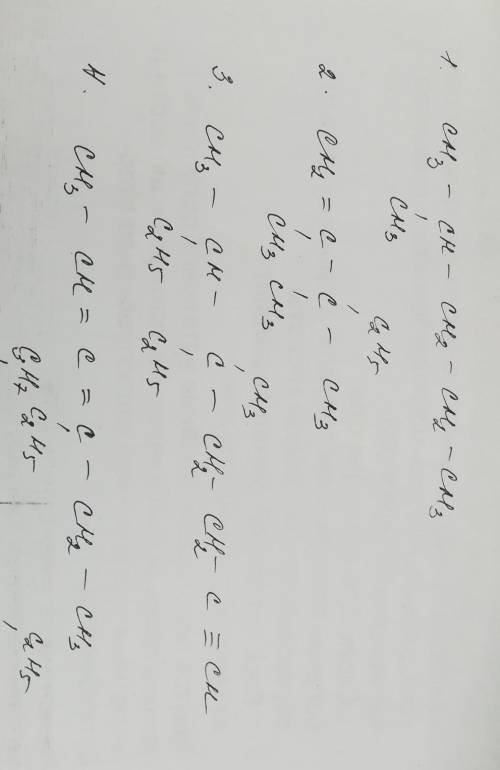 1. CH3 – CH – CH2 – CH2 – CH3
CH3
C2H5
2. CH2 = C – C – CH3
CH3 CH3
CH3
3. CH3 – CH – C – CH2 – CH2 – C ≡ CH
C2H5 C2H5
4. CH3 – CH = C = C – CH2 – CH3
C3H7 C2H5 C2H5